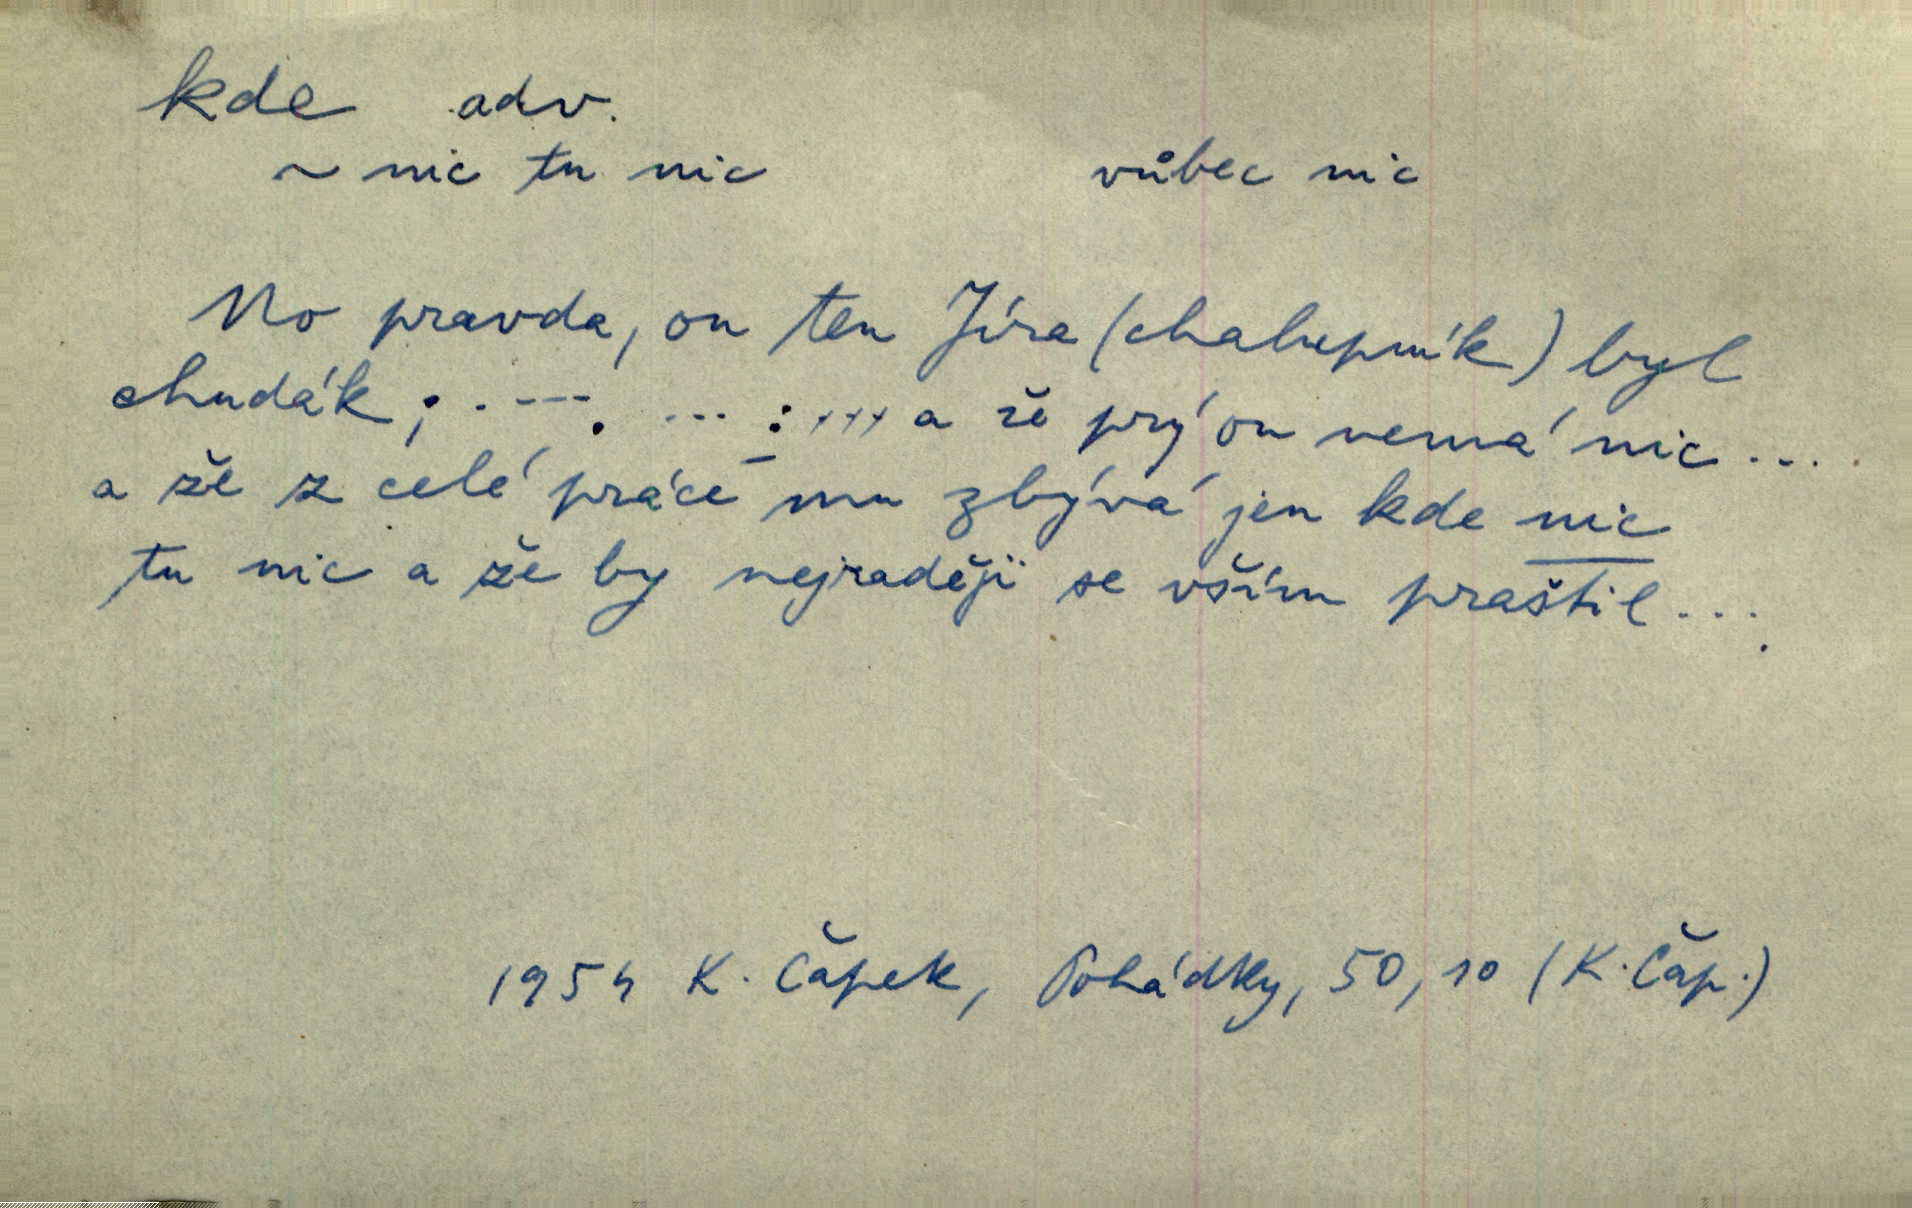 kde adv.
~ nic tu nic vůbec nic
No pravda, on ten Jíra (chalupník) byl
chudák; . - - - . ... : ... a že prý on nemá nic ...
a že z celé práce mu zbývá jen kde nic
tu nic a že by nejraději se vším praštil ...
1954 K. Čápek, Pohádky, 50, 10 (K. Čáp.)